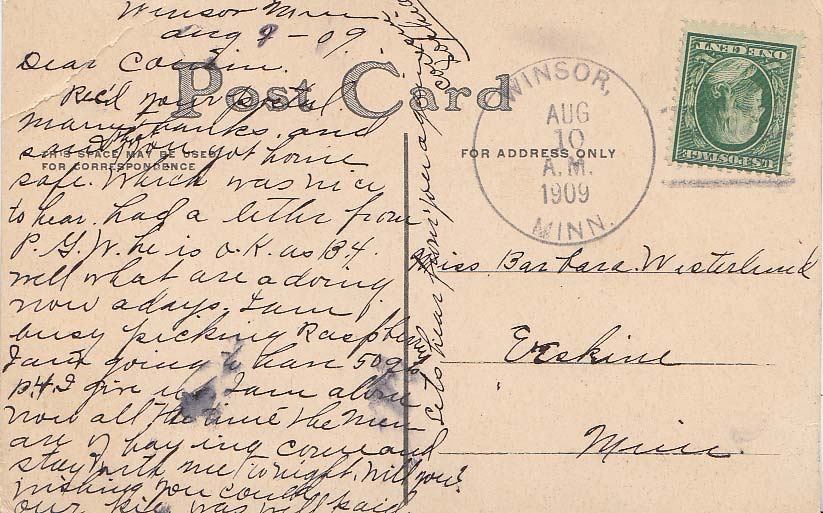 Winsor Minn
Aug 9 - 09
Dear Cousin.
Post Card
Rec'd your postal
many thanks. and
THIS SPACE MAY BE USED
FOR CORRESPONDENCE
said you got home
safe. Which was nice
to hear. had a lettr from
P. G. W. he is O.K. as B4.
well what are a doing
now adays. I am
busy picking Raspberry
I am going to have 50 qts
B4. I give up I am alone
now all the time the men
are haying come and
stay with me tonight, will you?
wishing you could
our was well said
Lets hear from you again
WINSOR,
AUG
10
A.M.
1909
MINN.
ONE CENT
U.S. POSTAGE
FOR ADDRESS ONLY
Miss Barbara. Westerlund
Erskine
Minn.